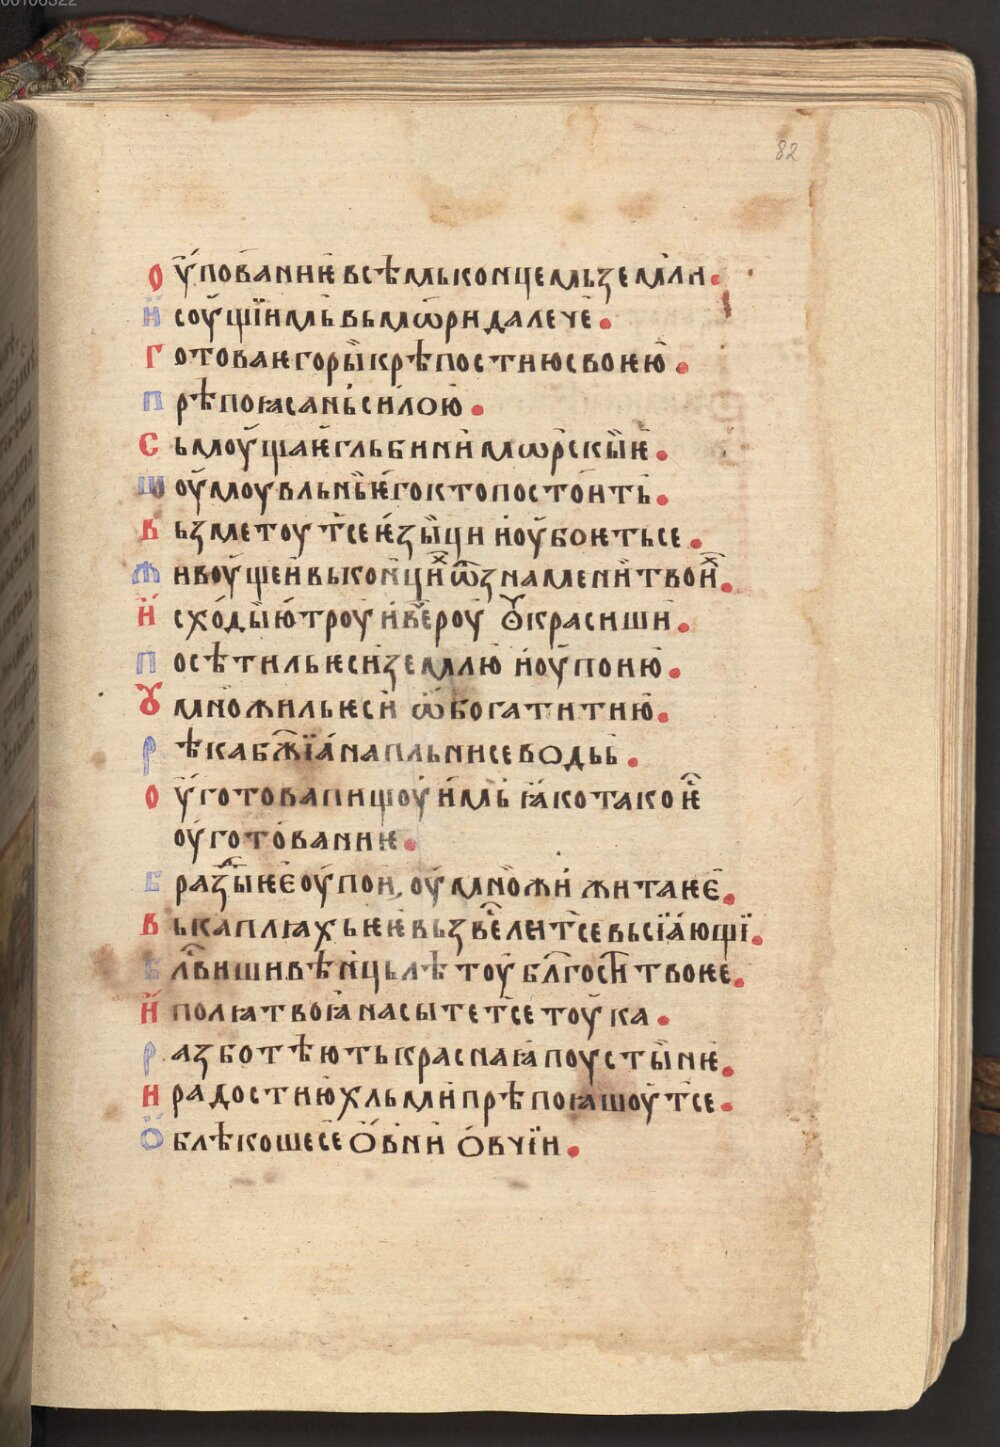 00106322
82
Оу҆пова́ниѥ всѣмь концемь земли.
И҆ соу҆щїимь вь мѡ҆ри далече.
Готоваѥ горы крѣпостию своѥю.
Прѣпоꙗсань силою.
Сьмоу҆щаѥ гльбини мѡрскыѥ.
Шоумоу вльнь ѥго кто постоить.
Вьзметоут се ѥзыци и оу҆боѥть се.
Живоу҆щеи вь концихь ѿ знамении твоих.
И҆сходы ю҆троу и ве҆роу ꙋкрасиши.
Посѣтиль ѥси землю и оу҆пою.
Ꙋмножиль ѥси ѡ҆богатити ю.
Рѣка бж҃їа напльни се водьь.
Оу҆готова пищоу҆ и҆мь ꙗко тако ѥ҆
оуготованиѥ.
Бразды ѥѥ оу҆пои, оу҆множи житаѥѥ.
Вь каплꙗхь ѥѥ вьзвелит се вьсїа́ющї.
Бл҃виши вѣньць лѣтоу҆ бл҃гости твоѥе.
И҆ полꙗ твоꙗ насытет се тоу҆ка.
Разботѣють краснаꙗ поустыниѥ.
И радостию хльми прѣпоꙗшоут се.
Ѻ҆блѣкоше се ѻ҆вни ѻ҆вчїи.